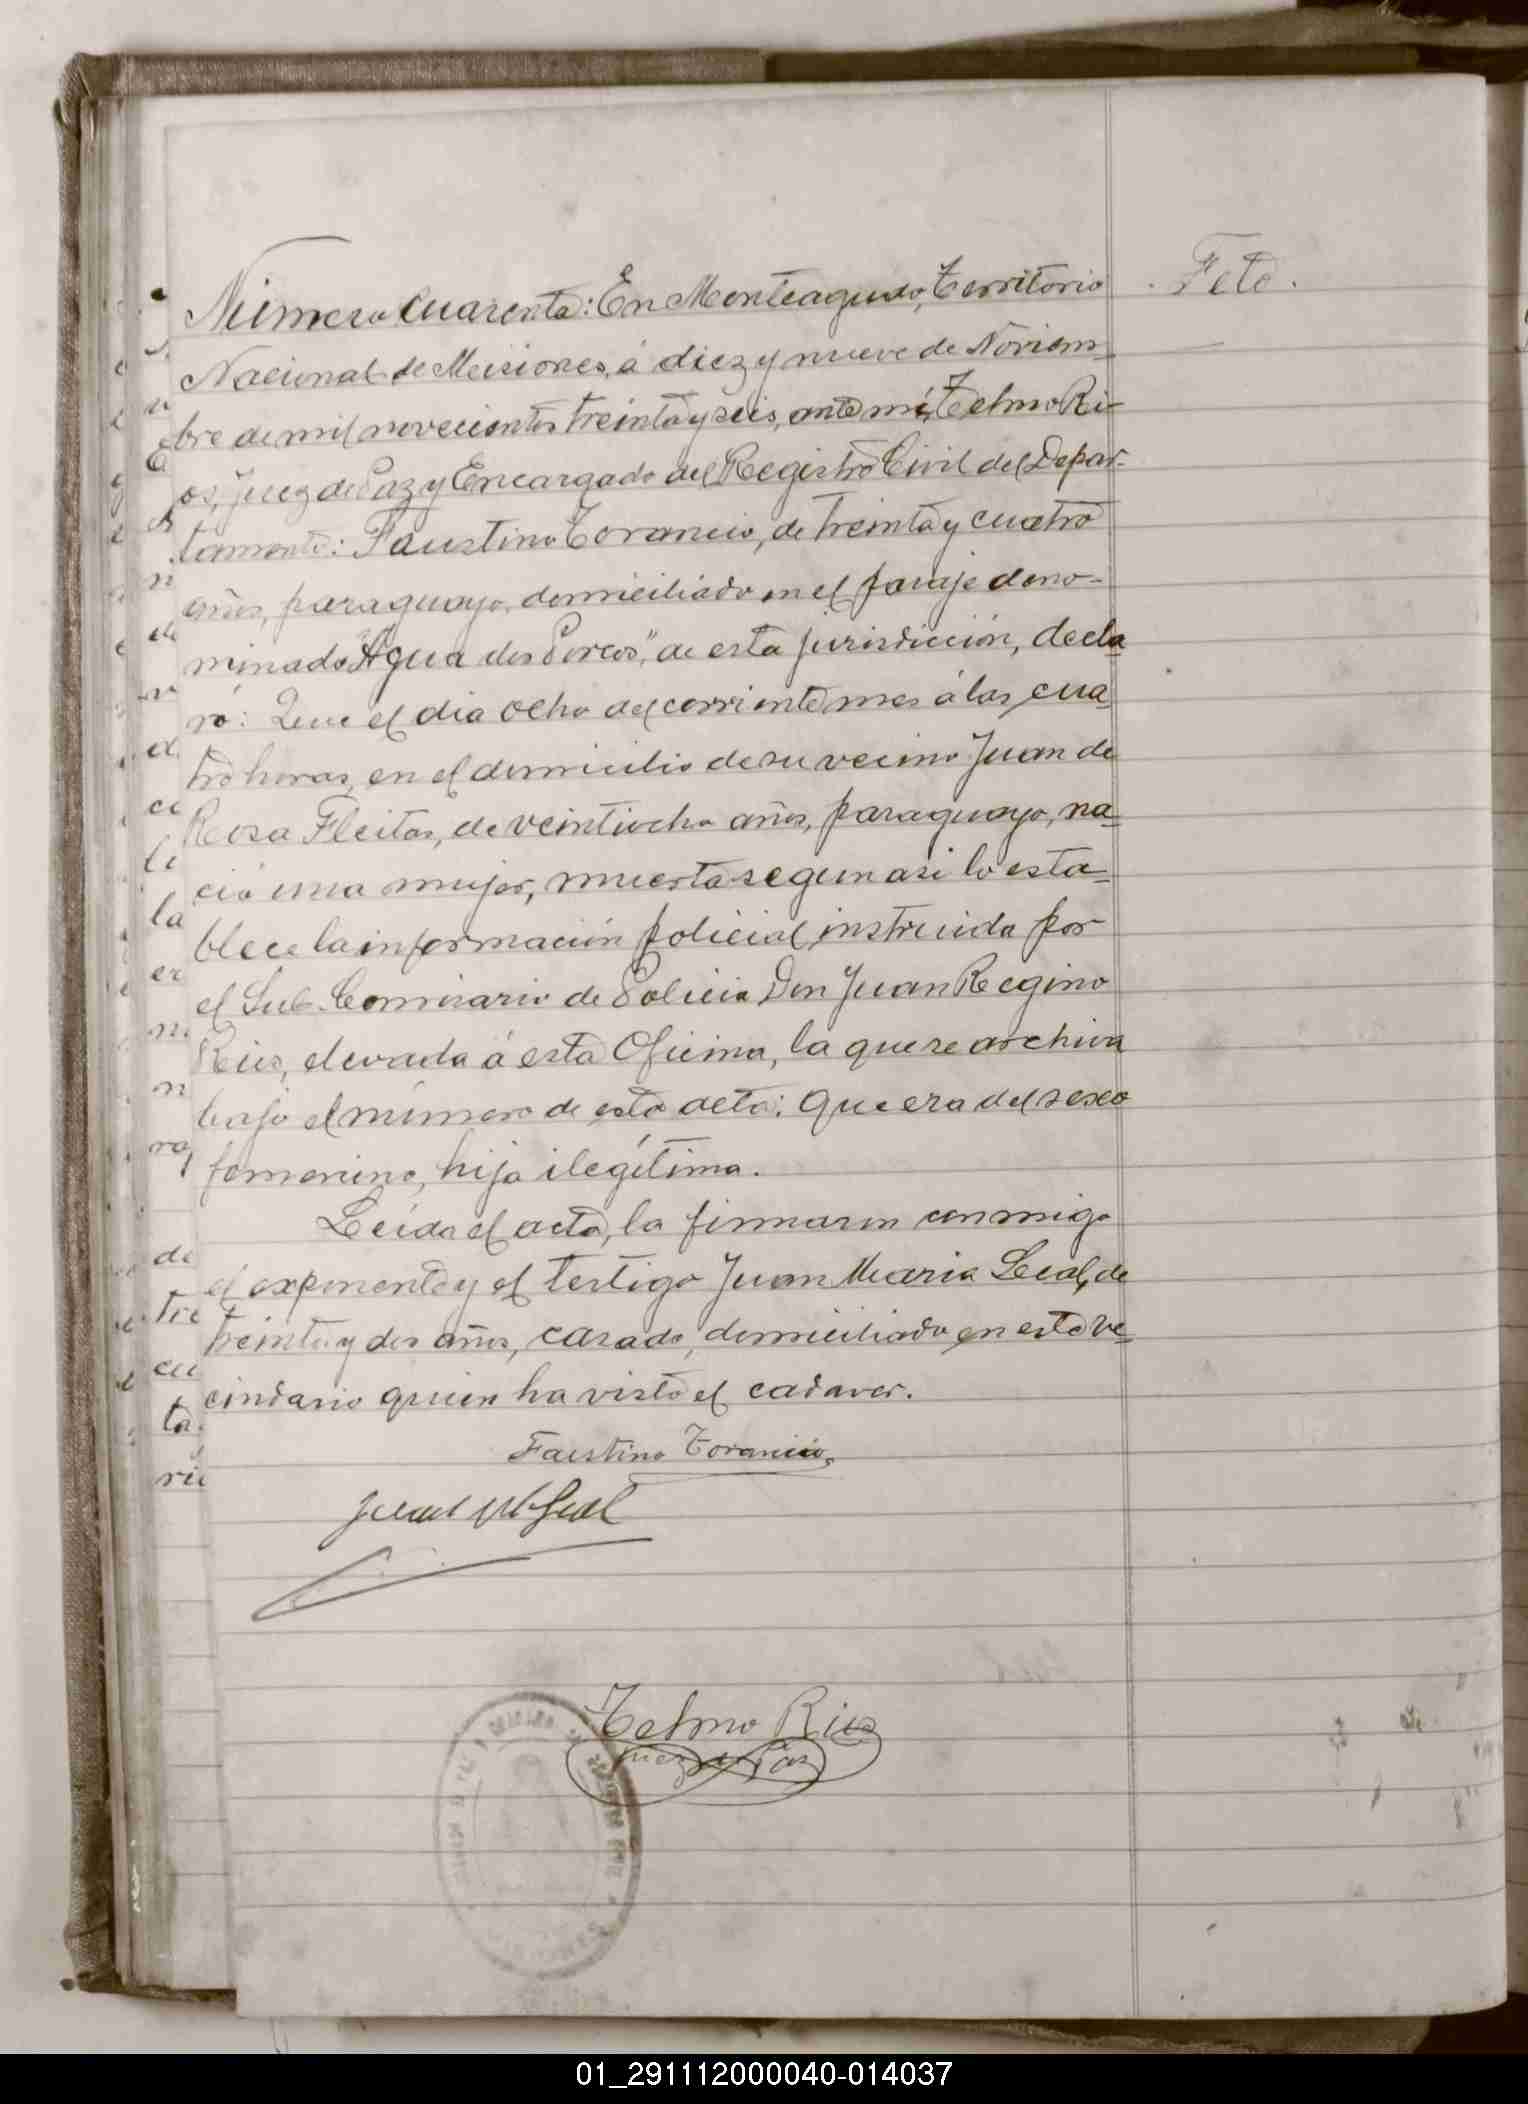 Número Cuarenta: En Monteagudo, Territorio
Feto.
Nacional de Misiones, á diez y nueve de Noviem-
bre de mil novecientos treinta y seis, ante mí, Telmo Ri-
os, Juez de Paz y Encargado del Registro Civil del Depar-
tamento: Faustino Torancio, de treinta y cuatro
años, paraguayo, domiciliado en el paraje deno-
minado "Agua dos Porcos", de esta jurisdicción, decla-
ró: Que el dia ocho del corriente mes á las cua-
tro horas, en el domicilio de su vecino Juan de
Rosa Fleitas, de veintiocho años, paraguayo, na-
ció una mujer, muerta segun asi lo esta-
blece la información policial instruida por
el Sub-Comisario de Policia Don Juan Regino
Rios, elevada á esta Oficina, la que se archiva
bajo el número de esta acta: Que era del sexo
femenino, hija ilegítima.
Leida el acta, la firmaron conmigo
el exponente y el testigo Juan Maria Leal, de
treinta y dos años, casado, domiciliado en este ve-
cindario quien ha visto el cadaver.
Faustino Torancio
Juan M Leal
Telmo Rios
Juez de Paz
01_291112000040-014037